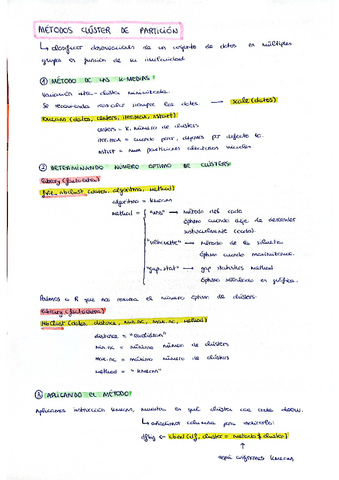 MÉTODOS CLÚSTER DE PARTICIÓN
↳ clasificar observaciones de un conjunto de datos en múltiples
grupos en función de su similitud
① MÉTODO DE LAS K-MEDIAS:
Variación intra-cluster minimizada.
Se recomienda escalar siempre los datos → scale(datos)
kmeans (datos, centers, iter.max, nstart)
centers = k. número de clusters
iter.max = cuando para, depende por defecto 10.
nstart = num particiones aleatorias iniciales
② DETERMINANDO NÚMERO ÓPTIMO DE CLUSTERS:
library (factoextra)
fviz_nbclust (datos, algoritmo, method)
algoritmo = kmeans
method = "wss" → método del codo
óptimo cuando deja de descender
bruscamente (codo).
"silhouette" → método de la silueta
óptimo cuando maximizamos.
"gap_stat" → gap statistics method
óptimo señalado en gráfica.
Pedimos a R que nos resuma el número óptimo de clusters:
library (factoextra)
Nbclust (datos, distance, min.nc, max.nc, method)
distance = "euclidean"
min.nc = mínimo número de clusters
max.nc = máximo número de clusters
method = "kmeans"
③ APLICANDO EL MÉTODO:
Aplicamos instrucción kmeans, muestra en qué cluster cae cada observ.
↳ añadimos columna para indicarlo:
← cbind(df, cluster = metodo$cluster)
↑
aquí kmeans